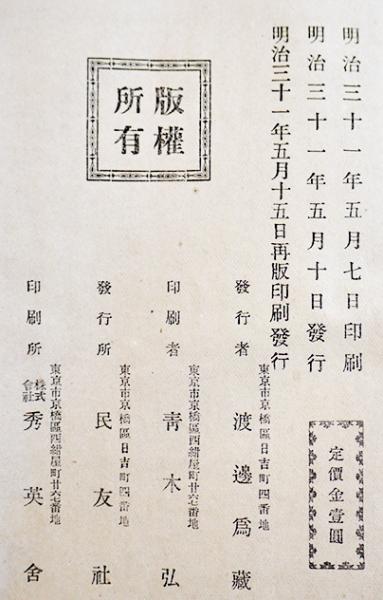 明治三十一年五月七日印刷
明治三十一年五月十日發行
明治三十一年五月十五日再版印刷發行
定價金壹圓
版權
所有
東京市京橋區日吉町四番地
發行者 渡邊爲藏
東京市京橋區西紺屋町廿六七番地
印刷者 靑木弘
東京市京橋區日吉町四番地
發行所 民友社
東京市京橋區西紺屋町廿六七番地
印刷所 株式會社 秀英舍